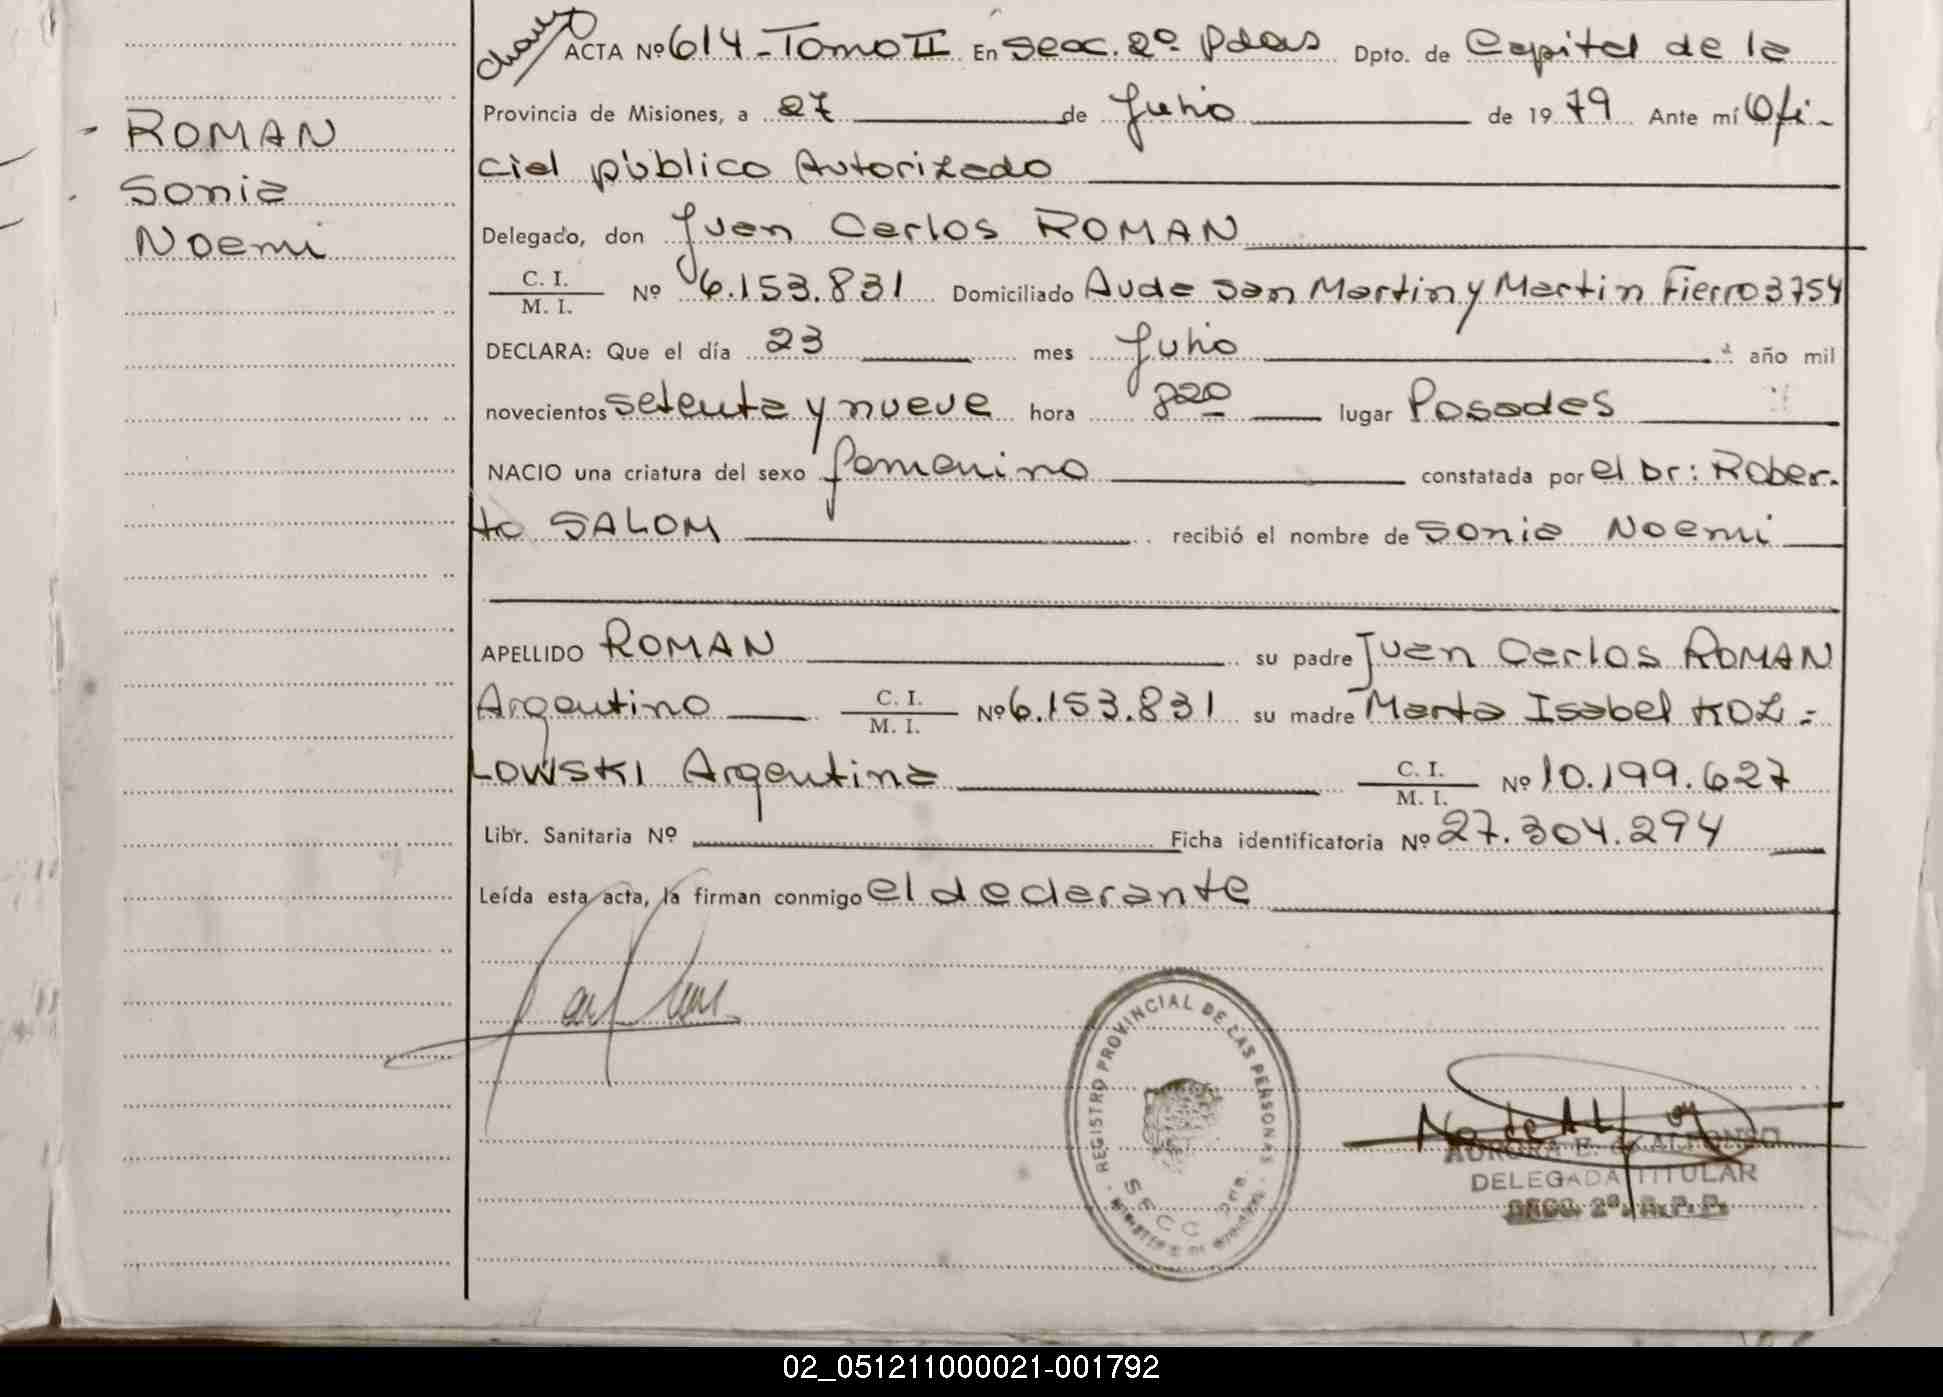 ACTA Nº 614 - Tomo II En Secc. 2º Pdas Dpto. de Capital de la
Provincia de Misiones, a 27 de Julio de 1979 Ante mí Ofi-
cial público Autorizado
Delegado, don Juan Carlos ROMAN
C. I.
M. I.
Nº 6.153.831 Domiciliado Avda San Martin y Martin Fierro 3754
DECLARA: Que el día 23 mes Julio año mil
novecientos setenta y nueve hora 820 lugar Posadas
NACIO una criatura del sexo femenino constatada por el Dr: Rober-
to SALOM recibió el nombre de Sonia Noemi
APELLIDO ROMAN su padre Juan Carlos ROMAN
Argentino C. I. M. I. Nº 6.153.831 su madre Marta Isabel KOZ-
LOWSKI Argentina C. I. M. I. Nº 10.199.627
Libr. Sanitaria Nº Ficha identificatoria Nº 27.304.294
Leída esta acta, la firman conmigo el declarante
ROMAN
Sonia
Noemi
REGISTRO PROVINCIAL DE LAS PERSONAS
SECC 2da.
AURORA E. ALFONZO
DELEGADA TITULAR
SECC. 2ª. R. P. P.
02_051211000021-001792